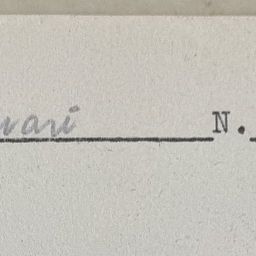 vari N.